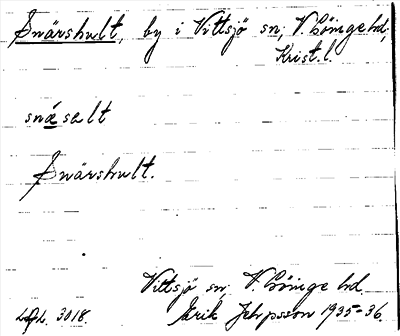 Snärshult, by i Vittsjö sn, V. Göinge hd,
Krist. l.
snä́sɐlt
Snärshult.
Vittsjö sn, V. Göinge hd.
3018. Erik Jeppsson 1935-36.